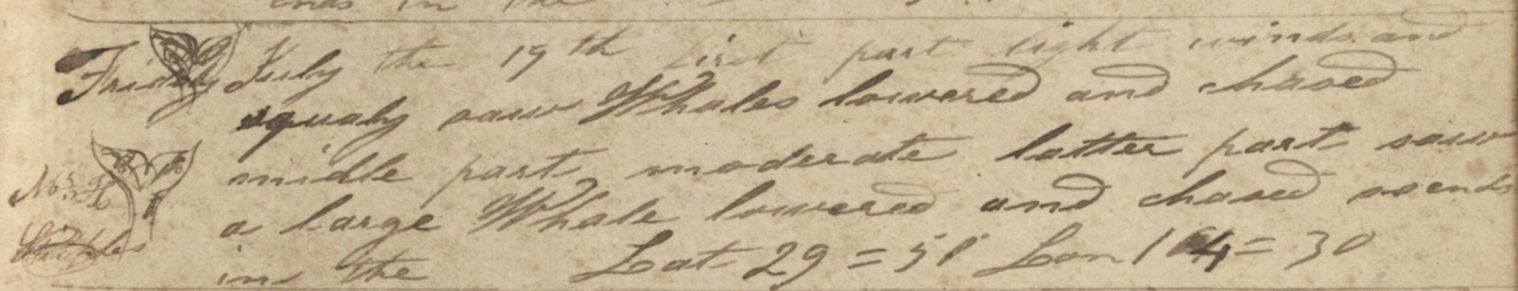 ends in the
Friday July the 19th first part light winds and
squaly saw Whales lowered and chased
midle part moderate latter part saw
a large Whale lowered and chased soends
in the Lat 29=51 Lon 164=30